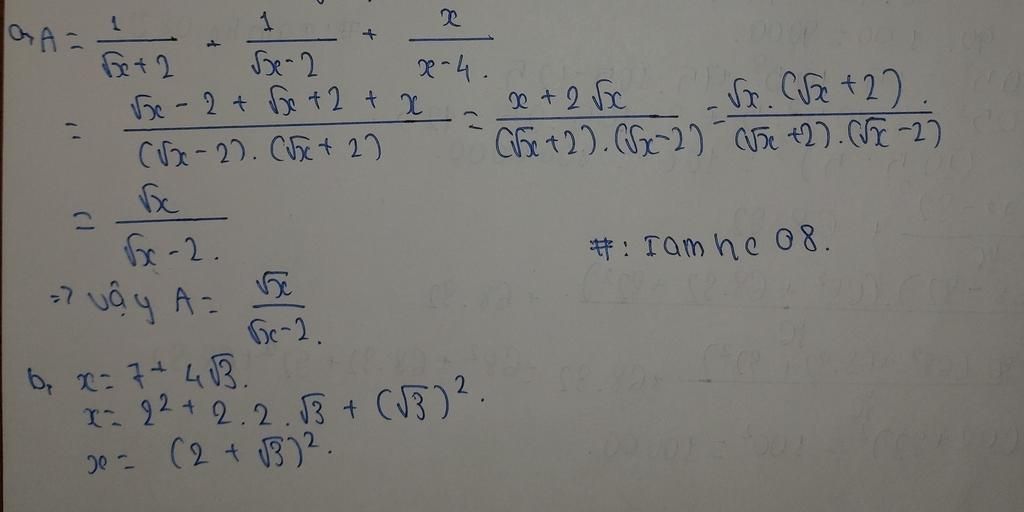 a, A = 1/(√x + 2) + 1/(√x - 2) + x/(x - 4).
= (√x - 2 + √x + 2 + x)/((√x - 2).(√x + 2)) = (x + 2√x)/((√x + 2).(√x - 2)) = (√x.(√x + 2).)/((√x + 2).(√x - 2))
= √x/(√x - 2.)
#: Iam nc 08.
=> vậy A = √x/(√x - 2.)
b, x = 7 + 4√3.
x = 2² + 2.2.√3 + (√3)².
x = (2 + √3)².